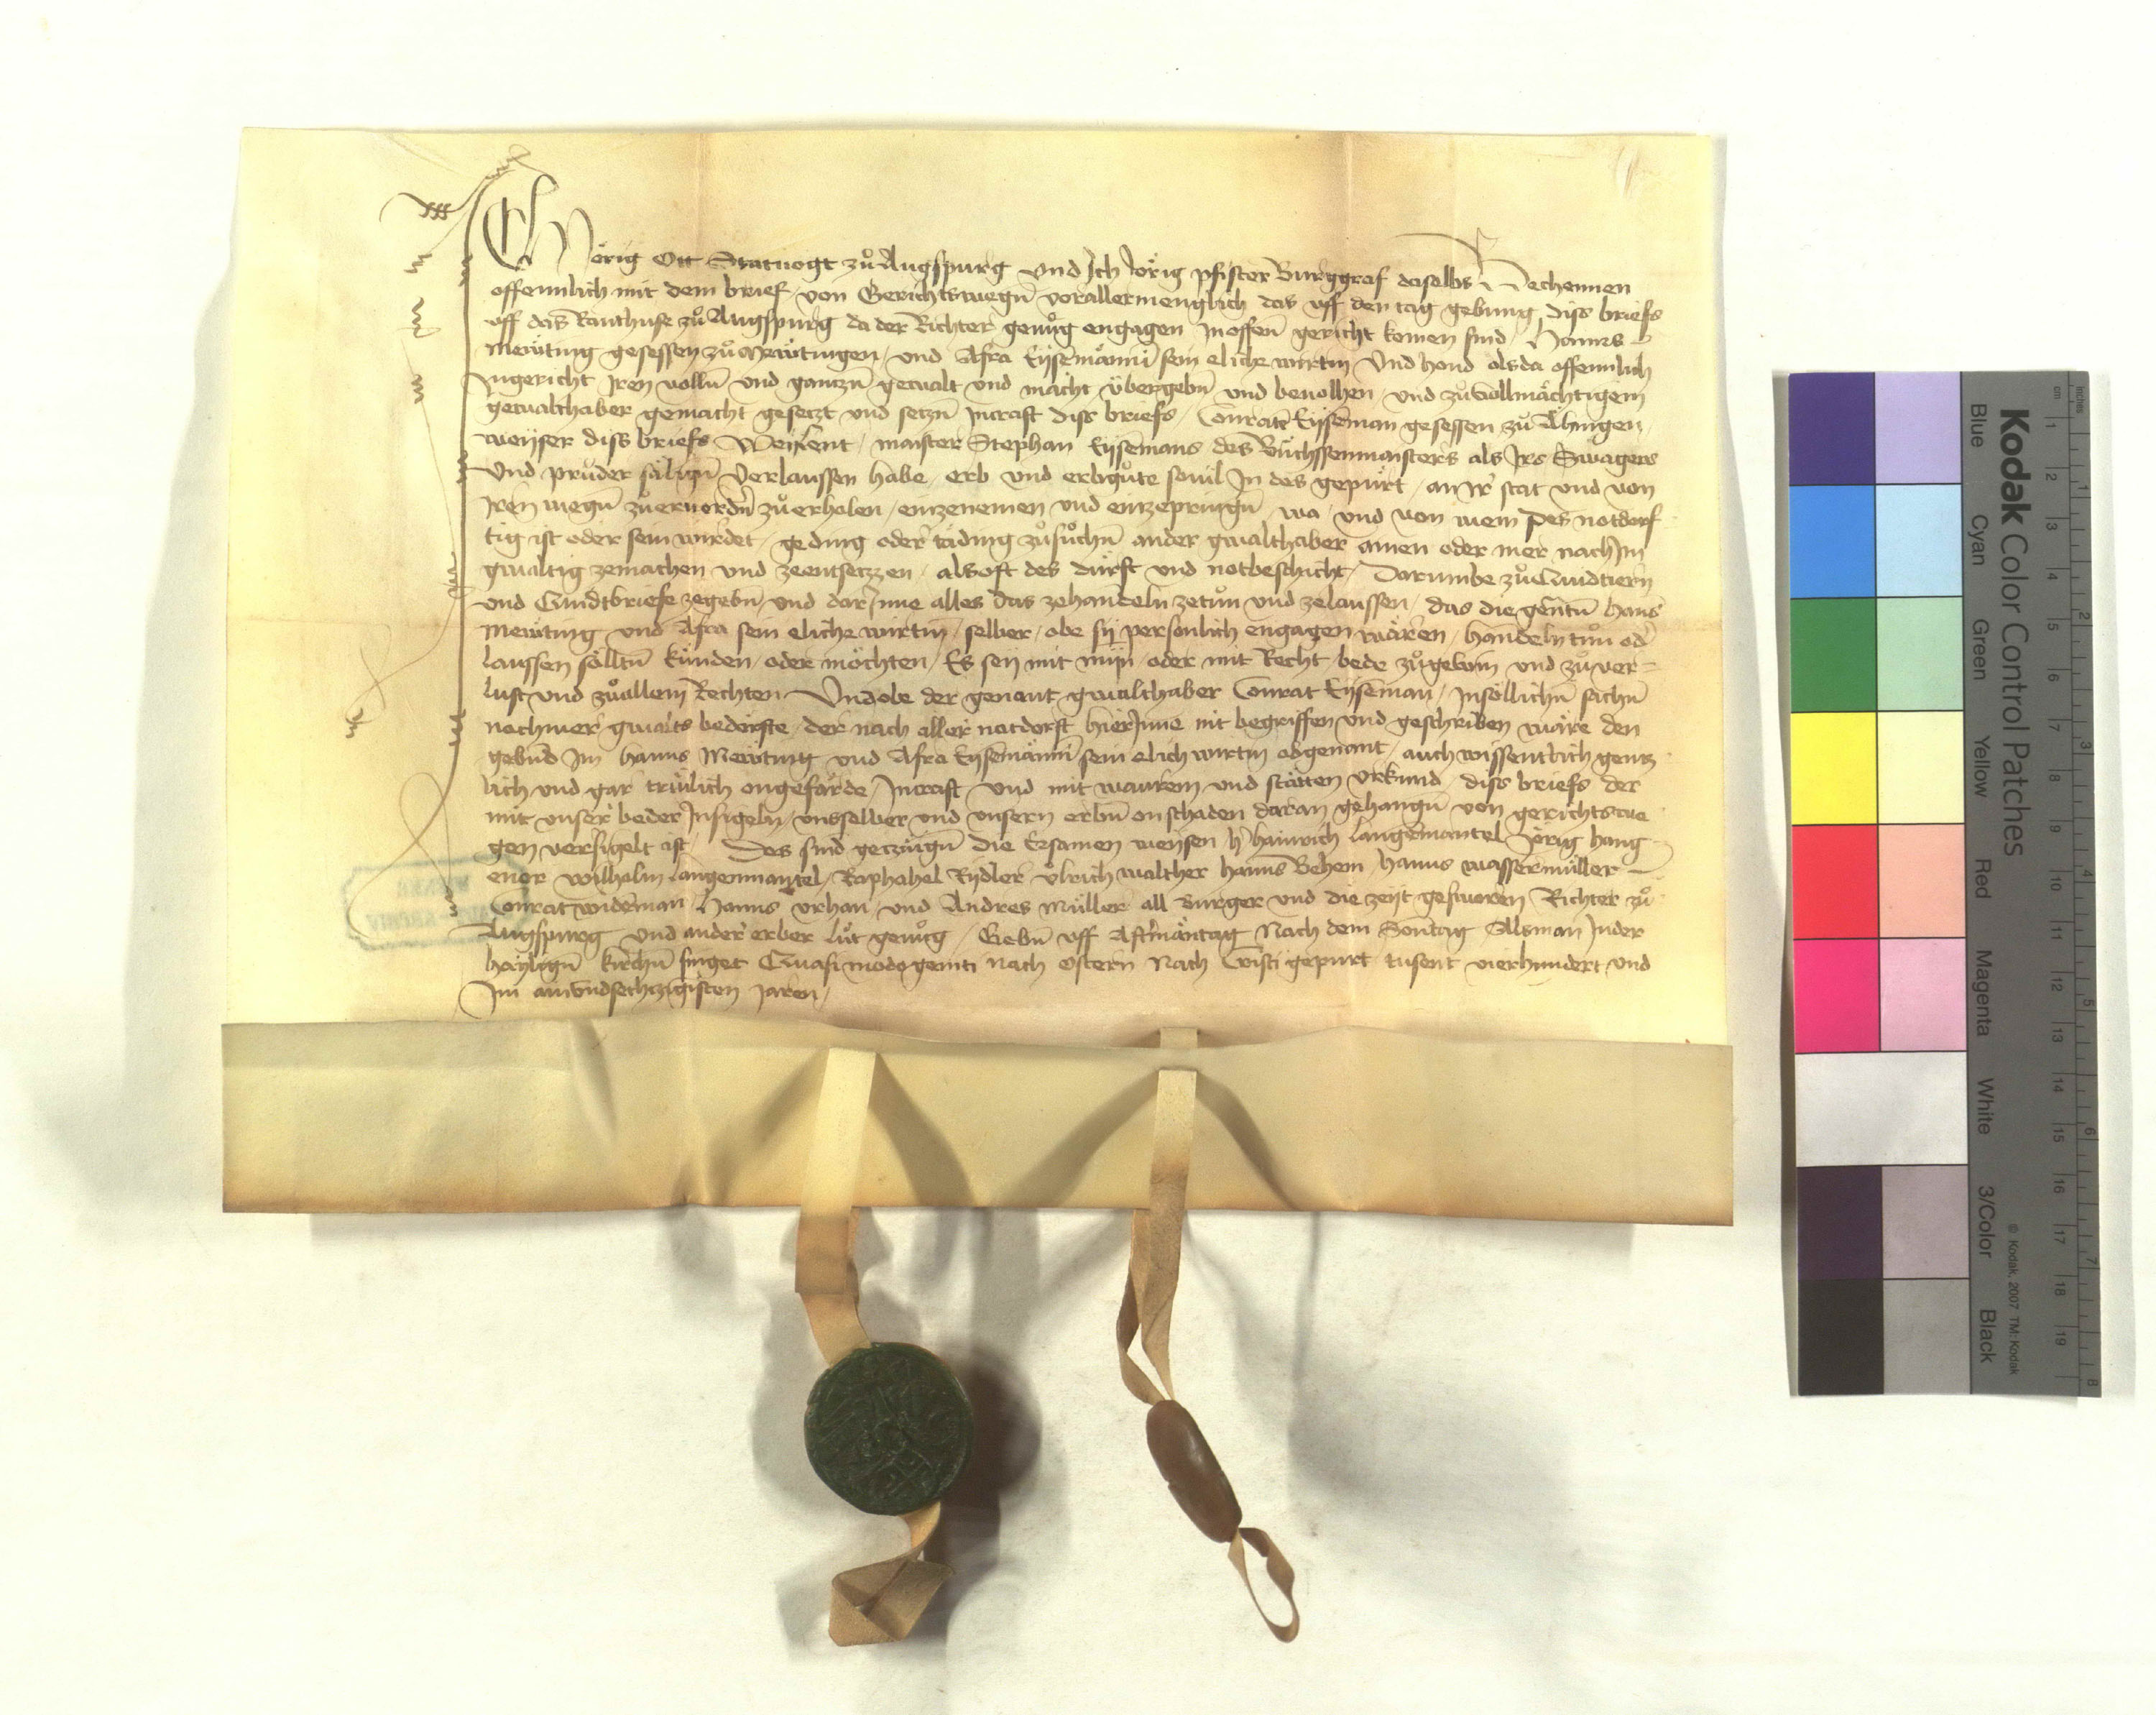 Ich Jörig Ott Statuogt zů Augspurg vnd Ich Jörig pfister Burggraf daselbs Bechennen
offennlich mit dem brief von Gerichtswegn̄ vorallermenglich das vff den tag gebung diss briefs
vff das Rauthuse zů Augspurg da der Richter genůg engagen Inoffem̄ gericht komen sind Hanns
Mewting gesessen zů Mewtingen vnd Afra Eysemännin̄ sein eliche wirtin Vnd hond alsda offennlich
Ingericht Iren volln̄ vnd gantzn̄ gewalt vnd macht übergebn̄ vnd beuolhen vnd zů Vollmächtigem
gewalthaber gemacht gesetzt vnd setzn̄ Incraft diss briefs Conratn̄ Eyseman gesessen zů Ahingen
weyser diss briefs Weylent maister Stephan Eysemans des Büchssenmaisters als Irs Swagers
Vnd průder sälign̄ Verlaussen habe erb vnd erbgůte souil In des gepürt an Ir stat vnd von
Iren wegn̄ zů eruordn̄ zů erholen einzenemen vnd einzepringn̄ wa vnd von wem des notdorf
tig ist oder sein wirdet geding oder täding zů sůchn̄ ander gwalthaber ainen oder mer nach Im
gwaltig zemachen vnd zeentsetzzen als oft des dürft vnd notbeschicht Darumbe zů Quidtiern̄
vnd Quidtbriefe zegebn̄ vnd dar Inne alles das zehandeln zetůn vnd zelaussen das die genn̄tn̄ Hans
Mewting vnd Afra sein eliche wirtin selber obe sy personlich engagen wären handeln tůn od
laussen sölltn̄ künden oder möchten Es sey mit mỹn oder mit Recht bede zů gewin vnd zů ver=
lust vnd zů allem Rechten Vnd obe der genant gwalthaber Conrat Eyseman Insöllichn̄ sachn̄
nochmer gwalts bedörfte der nach aller notdorft hier Inne nit begriffen vnd geschriben wäre den
gebn̄d Im Hanns Mewting vnd Afra Eysemännin̄ sein elich wirtin obgenant auch wissentlich gentz
lich vnd gar trülich ongefärde Incraft vnd mit waurem vnd stätten vrkund diss briefs der
mit vnser beder Insigeln vnsselber vnd vnsern erbn̄ on schaden daran gehangn̄ von gerichtswe
gen versigelt ist Des sind getzügn̄ die Ersamen weysen h̄ Hainrich Langenmantel Jörig Hang
enor Wilhelm Langenmantel Raphahel Rydler Ulrich Walther Hanns Behem Hanns Wassermüller
Conrat Wideman Hanns Vrhan vnd Andres Müller all Burger vnd die zeyt gesworen Richter zů
Augspurg vnd ander erber lüt genůg Gebn̄ vff Aftermäntag Nach dem Sontag Alsman Inder
haylign̄ kirchn̄ singet Quasimodogeniti nach ostern Nach Cristi gepurt tusent vierhundert vnd
Im ainvndsechtzigisten jaren
Kodak Color Control Patches
Blue Cyan Green Yellow Red Magenta White 3/Color Black
© Kodak, 2007 TM: Kodak
cm 1 2 3 4 5 6 7 8 9 10 11 12 13 14 15 16 17 18 19
Inches 1 2 3 4 5 6 7 8